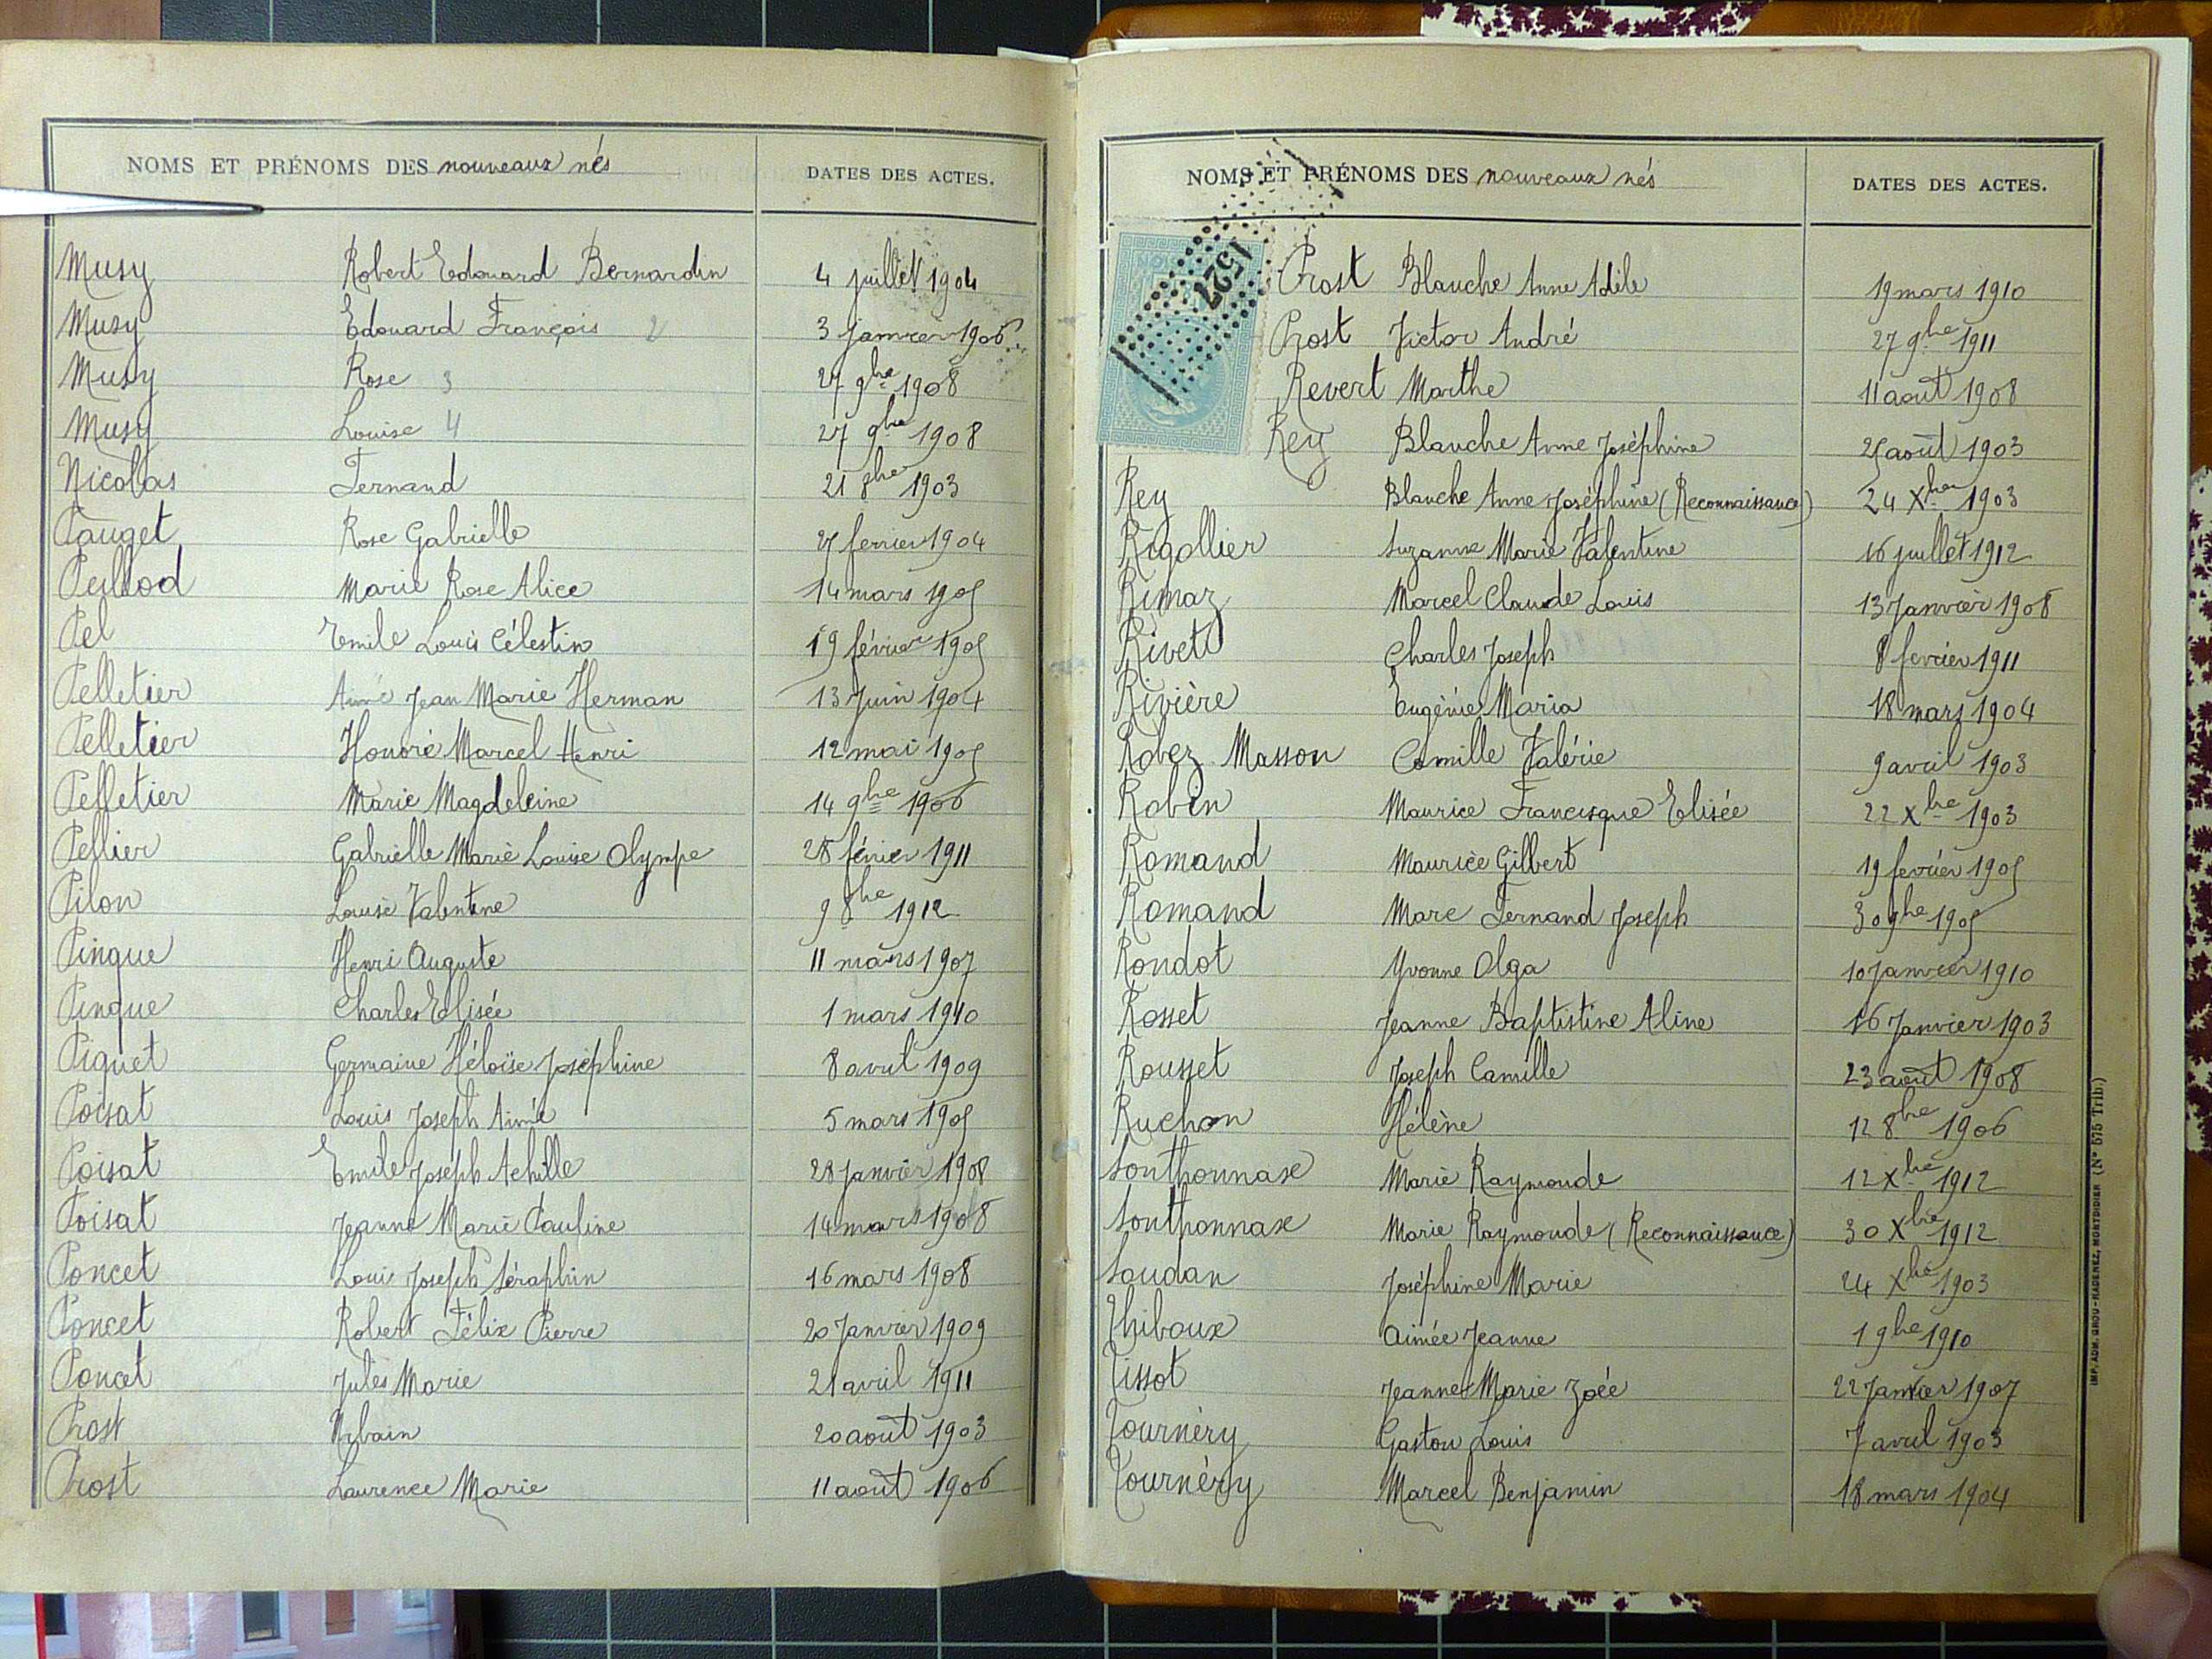 NOMS ET PRÉNOMS DES nouveaux nés DATES DES ACTES.
Musy Robert Edouard Bernardin 4 juillet 1904
Musy Edouard François 2 3 janvier 1906
Musy Rose 3 27 9bre 1908
Musy Louise 4 27 9bre 1908
Nicolas Fernand 21 8bre 1903
Pauget Rose Gabrielle 27 fevrier 1904
Peillod Marie Rose Alice 14 mars 1905
Pel Emile Louis Célestin 19 février 1905
Pelletier Aimé Jean Marie Herman 13 Juin 1904
Pelletier Honoré Marcel Henri 12 mai 1905
Pelletier Marie Magdeleine 14 9bre 1906
Pellier Gabrielle Marie Louise Olympe 28 février 1911
Pilon Louise Valentine 9 8bre 1912
Pinque Henri Auguste 11 mars 1907
Pinque Charles Elisée 1 mars 1910
Piquet Germaine Héloïse Joséphine 8 avril 1909
Poisat Louis Joseph Aimé 5 mars 1905
Poisat Emile Joseph Achille 28 Janvier 1908
Poisat Jeanne Marie Pauline 14 mars 1908
Poncet Louis Joseph Séraphin 16 mars 1908
Poncet Robert Félix Pierre 20 Janvier 1909
Poncet Jules Marie 21 avril 1911
Prost Urbain 20 août 1903
Prost Laurence Marie 11 août 1906
NOMS ET PRÉNOMS DES nouveaux nés DATES DES ACTES.
1527
Prost Blanche Anne Adèle 19 mars 1910
Prost Victor André 27 9bre 1911
Revert Marthe 11 août 1908
Rey Blanche Anne Joséphine 25 août 1903
Rey Blanche Anne Joséphine (Reconnaissance) 24 Xbre 1903
Rigollier Suzanne Marie Valentine 16 juillet 1912
Rimaz Marcel Claude Louis 13 Janvier 1908
Rivet Charles Joseph 8 fevrier 1911
Rivière Eugénie Maria 18 mars 1904
Robez Masson Camille Valérie 9 avril 1903
Robin Maurice Francisque Elisée 22 Xbre 1903
Romand Maurice Gilbert 19 fevrier 1905
Romand Marc Fernand Joseph 30 9bre 1905
Rondot Yvonne Olga 10 Janvier 1910
Rosset Jeanne Baptistine Aline 16 Janvier 1903
Rousset Joseph Camille 23 août 1908
Ruchon Hélène 12 8bre 1906
Sonthonnax Marie Raymonde 12 Xbre 1912
Sonthonnax Marie Raymonde (Reconnaissance) 30 Xbre 1912
Soudan Joséphine Marie 24 Xbre 1903
Thiboux Aimée Jeanne 1 9bre 1910
Tissot Jeanne Marie Zoée 22 Janvier 1907
Tournéry Gaston Louis 7 avril 1903
Tournéry Marcel Benjamin 18 mars 1904
IMP. ADM. GROU-RADENEZ, MONTDIDIER (N° 575 Trib.)